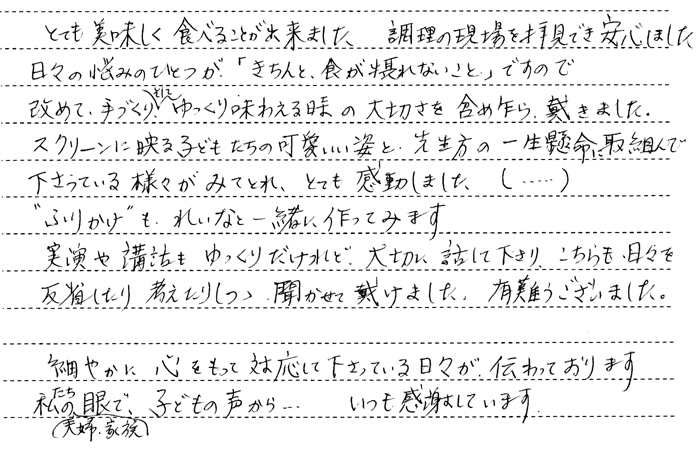 とても美味しく食べることが出来ました、 調理の現場を拝見でき安心しました
日々の悩みのひとつが、「きちんと、食が摂れないこと」ですので
改めて、手づくり、そして ゆっくり味わえる時の大切さを含め乍ら、戴きました。
スクリーンに映る子どもたちの可愛いい姿と、先生方の一生懸命に取組んで
下さっている様々がみてとれ、とても感動しました、（……）
"ふりかけ"も、れいなと一緒に、作ってみます
実演や講話もゆっくりだけれど、大切に話して下さり、こちらも、日々を
反省したり考えたりしつゝ聞かせて戴けました。有難うございました。
細やかに心をもって対応して下さっている日々が、伝わっております
私たちの眼で、子どもの声から… いつも感謝しています。
(夫婦・家族)